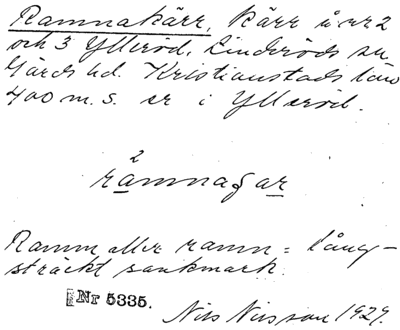 Ramnakärr, kärr å nr 2
och 3 Ylleröd, Linderöds sn
Gärds hd. Kristianstads län
400 m. S. er i Ylleröd.
2
råmnagar
Ramm eller ramn = lång-
sträckt sankmark.
Nr 5335.
Nils Nilsson 1929.